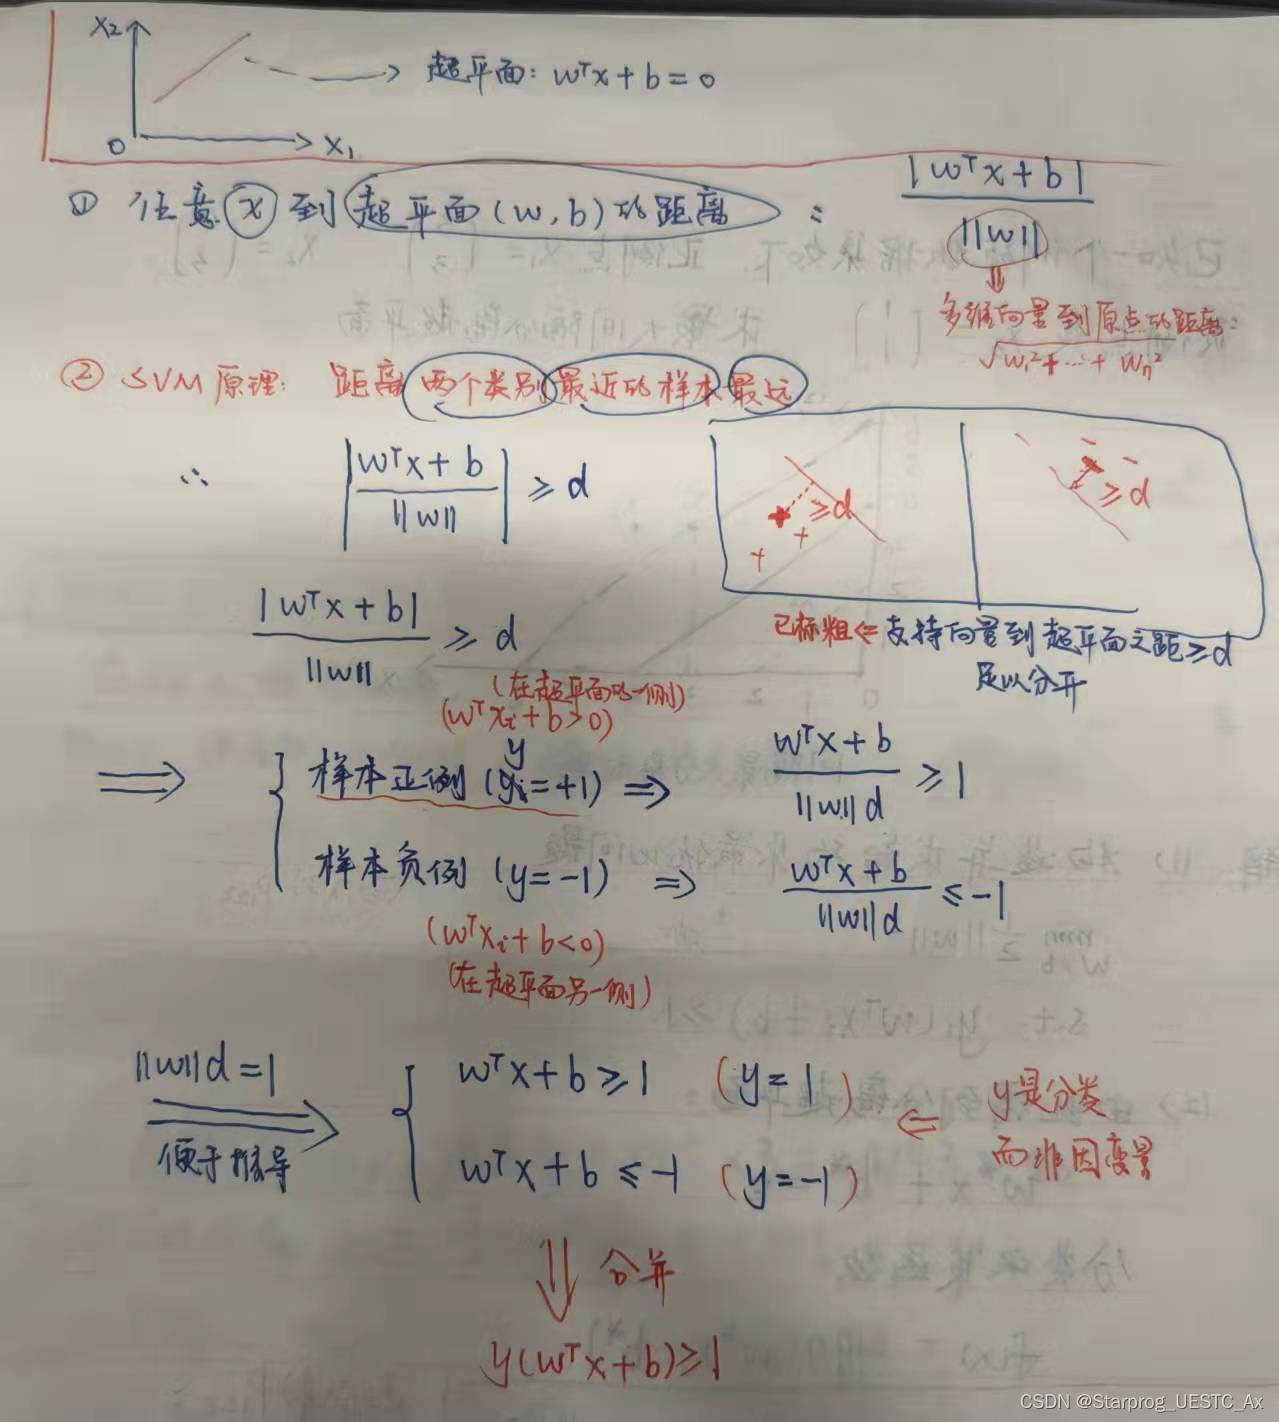 x₂
超平面: wᵀx + b = 0
0 x₁
① 任意 x 到 超平面 (w, b) 的距离 : |wᵀx + b| / ||w||
⇓
多维向量到原点的距离:
√w₁² + … + wₙ²
② SVM 原理: 距离 两个类别 最近的样本 最远
∴ |(wᵀx + b) / ||w||| ≥ d
≥ d
≥ d
|wᵀx + b| / ||w|| ≥ d
已标粗 ⇐ 支持向量到超平面之距 ≥ d
足以分开
(在超平面的一侧)
(wᵀxᵢ + b > 0)
y
⟹ { 样本正例 (yᵢ = +1) ⇒ (wᵀx + b) / (||w|| d) ≥ 1
样本负例 (y = -1) ⇒ (wᵀx + b) / (||w|| d) ≤ -1
(wᵀxᵢ + b < 0)
(在超平面另一侧)
||w|| d = 1
⟹
便于推导
{ wᵀx + b ≥ 1 (y = 1)
wᵀx + b ≤ -1 (y = -1)
⇐ y是分类
而非因变量
⇓ 合并
y(wᵀx + b) ≥ 1
CSDN @Starprog_UESTC_Ax